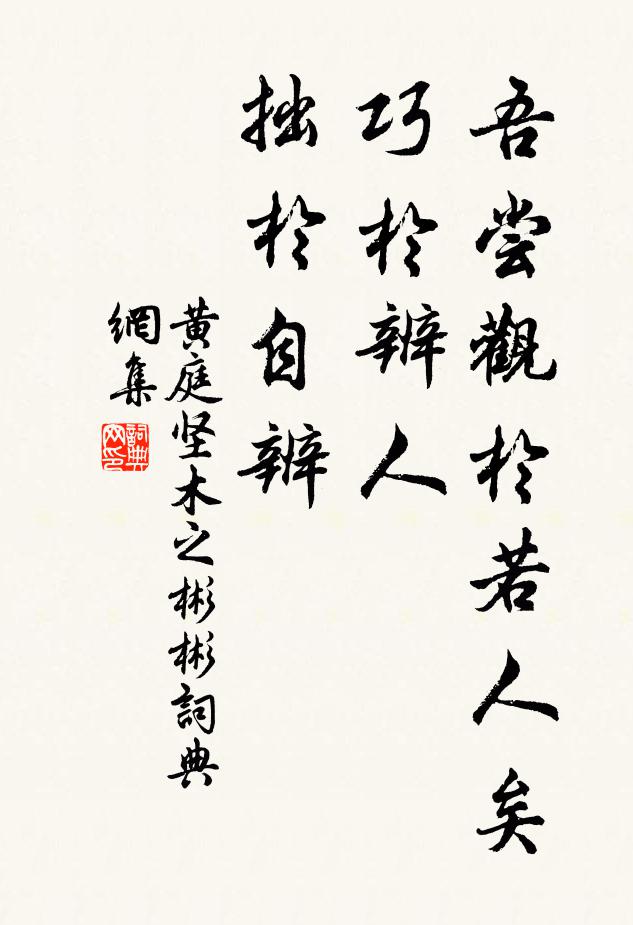 吾尝觀於若人矣
巧於辨人
拙於自辨
黄庭坚木之彬彬詞典
網集
詞典
网印